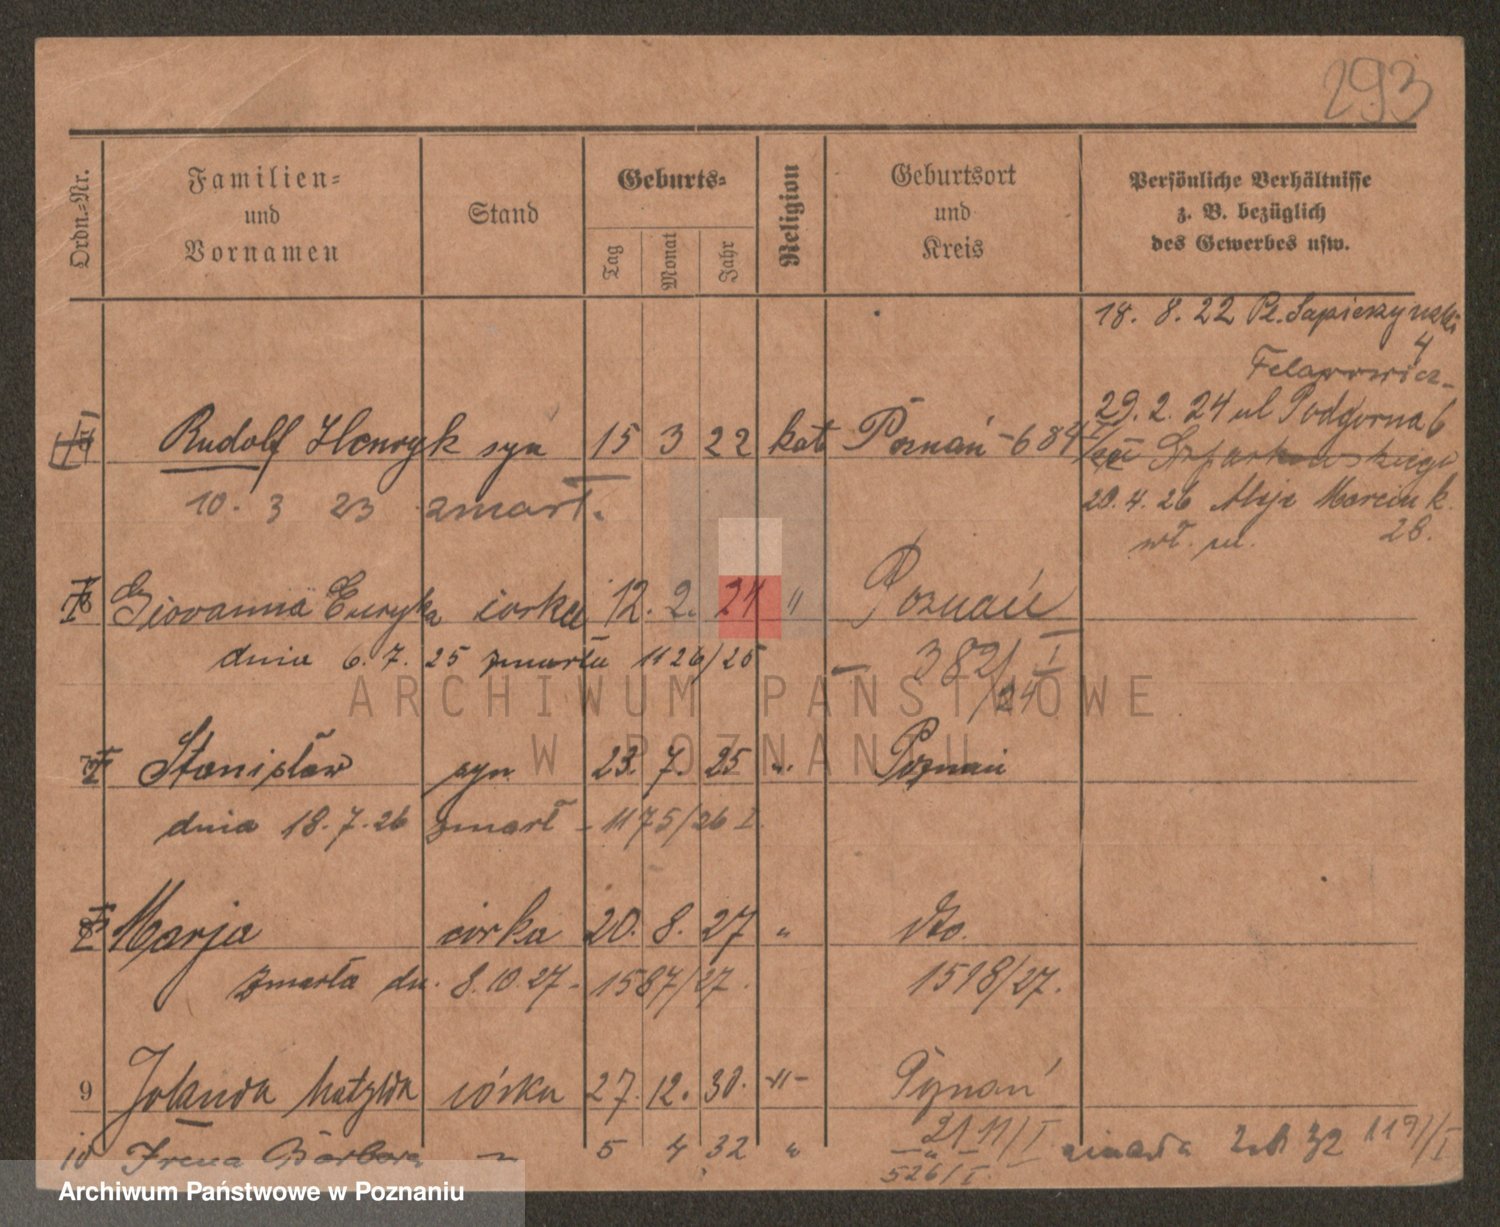 293
Ordn.=Nr.
Familien=
und
Vornamen
Stand
Geburts=
Tag
Monat
Jahr
Religion
Geburtsort
und
Kreis
Persönliche Verhältnisse
z. B. bezüglich
des Gewerbes usw.
18. 8. 22 Pl. Sapieżyński
4
29. 2. 24 ul Podgorna 6
Rudolf Henryk syn 15 3 22 kat Poznań - 684/
10. 3 23 zmarł.
20. 4. 26 Aleje Marcink.
28.
Giovanna Euryka córka 12. 2. 24 " Poznań
dnia 6. 7. 25 zmarła 1126/25 — 382/24 I
ARCHIWUM PAŃSTWOWE
W POZNANIU
Stanisław syn 23. 7. 25 " Poznań
dnia 18. 7. 26 zmarł - 1175/26 I.
Marja córka 20. 8. 27 " dto.
zmarła dn. 8. 10. 27 - 1587/27. 1598/27.
9 Jolanda Matylda córka 27. 12. 30. -"- Poznań
2111/I
10 Irena Barbara — 5 4 32 " —"— zmarła 32 119/I
526/I.
Archiwum Państwowe w Poznaniu